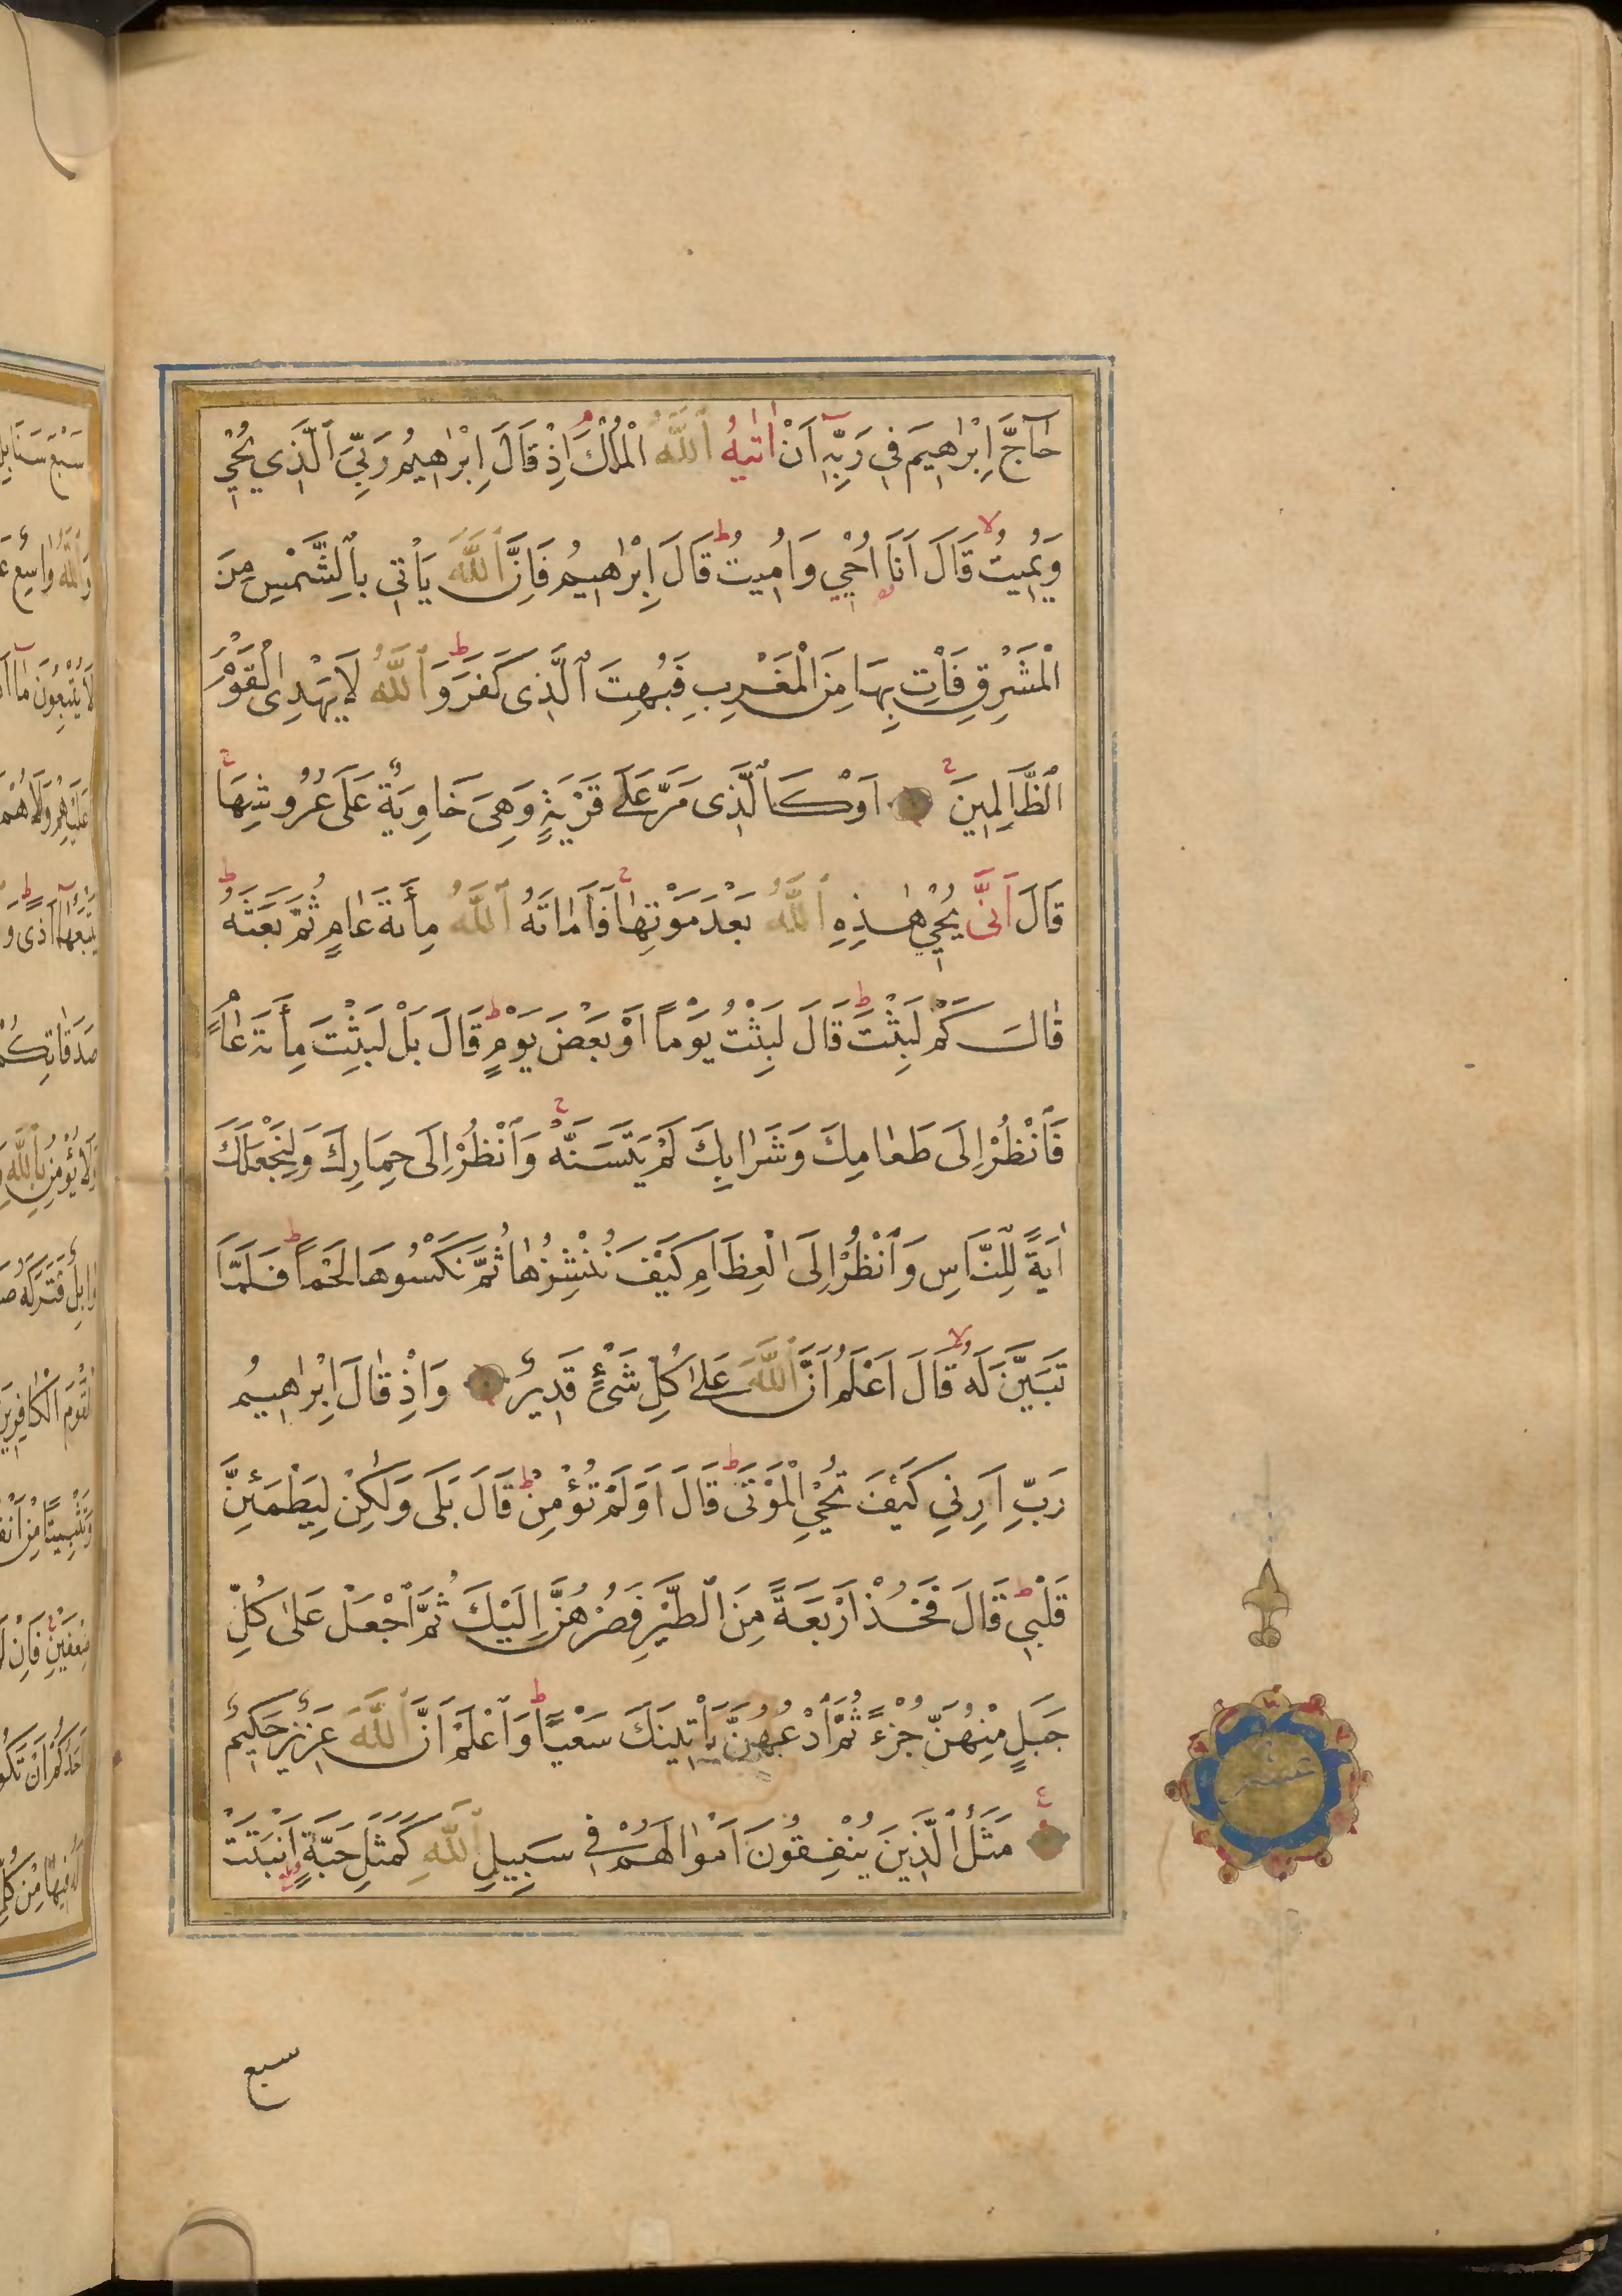 حَآجَّ اِبْرٰاهِيمَ فِي رَبِّهِٓ اَنْ اٰتٰيهُ ٱللّٰهُ الْمُلْكَ اِذْ قَالَ اِبْرٰاهِيمُ رَبِّيَ ٱلَّذِي يُحْيِي
وَيُمِيتُ قَالَ اَنَا اُحْيِي وَاُمِيتُ قَالَ اِبْرٰاهِيمُ فَاِنَّ ٱللّٰهَ يَأْتِي بِٱلشَّمْسِ مِنَ
الْمَشْرِقِ فَأْتِ بِهَا مِنَ الْمَغْرِبِ فَبُهِتَ ٱلَّذِي كَفَرَ وَٱللّٰهُ لَا يَهْدِي الْقَوْمَ
ٱلظَّالِمِينَ اَوْ كَٱلَّذِي مَرَّ عَلٰى قَرْيَةٍ وَهِيَ خَاوِيَةٌ عَلَى عُرُوشِهَا
قَالَ اَنّٰى يُحْيِي هٰذِهِ ٱللّٰهُ بَعْدَ مَوْتِهَا فَاَمَاتَهُ ٱللّٰهُ مِأَئَةَ عَامٍ ثُمَّ بَعَثَهُ
قَالَ كَمْ لَبِثْتَ قَالَ لَبِثْتُ يَوْماً اَوْ بَعْضَ يَوْمٍ قَالَ بَلْ لَبِثْتَ مِأَئَةَ عَامٍ
فَٱنْظُرْ اِلَى طَعَامِكَ وَشَرَابِكَ لَمْ يَتَسَنَّهْ وَٱنْظُرْ اِلَى حِمَارِكَ وَلِنَجْعَلَكَ
اٰيَةً لِلنَّاسِ وَٱنْظُرْ اِلَى الْعِظَامِ كَيْفَ نُنْشِزُهَا ثُمَّ نَكْسُوهَا لَحْماً فَلَمَّا
تَبَيَّنَ لَهُ قَالَ اَعْلَمُ اَنَّ ٱللّٰهَ عَلٰى كُلِّ شَيْءٍ قَدِيرٌ وَاِذْ قَالَ اِبْرٰاهِيمُ
رَبِّ اَرِنِي كَيْفَ تُحْيِ الْمَوْتَى قَالَ اَوَلَمْ تُؤْمِنْ قَالَ بَلَى وَلٰكِنْ لِيَطْمَئِنَّ
قَلْبِي قَالَ فَخُذْ اَرْبَعَةً مِنَ الطَّيْرِ فَصُرْهُنَّ اِلَيْكَ ثُمَّ ٱجْعَلْ عَلٰى كُلِّ
جَبَلٍ مِنْهُنَّ جُزْءً ثُمَّ ٱدْعُهُنَّ يَأْتِينَكَ سَعْياً وَٱعْلَمْ اَنَّ ٱللّٰهَ عَزِيزٌ حَكِيمٌ
مَثَلُ ٱلَّذِينَ يُنْفِقُونَ اَمْوَالَهُمْ فِي سَبِيلِ ٱللّٰهِ كَمَثَلِ حَبَّةٍ اَنْبَتَتْ
سبع
عشر